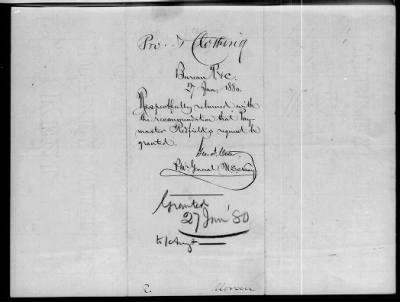 Pro. & Clothing
Bureau P. & C.
27 Jan, 1880.
Respectfully returned with
the recommendation that Pay-
master Redfield's request be
granted.
Geo. F. Cutter
P. M. General U.S. Navy
Granted
27 Jan '80